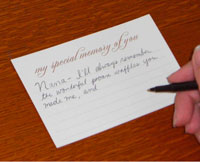 my special memory of you
Nana - I'll always remember
the wonderful pecan waffles you
made me, and